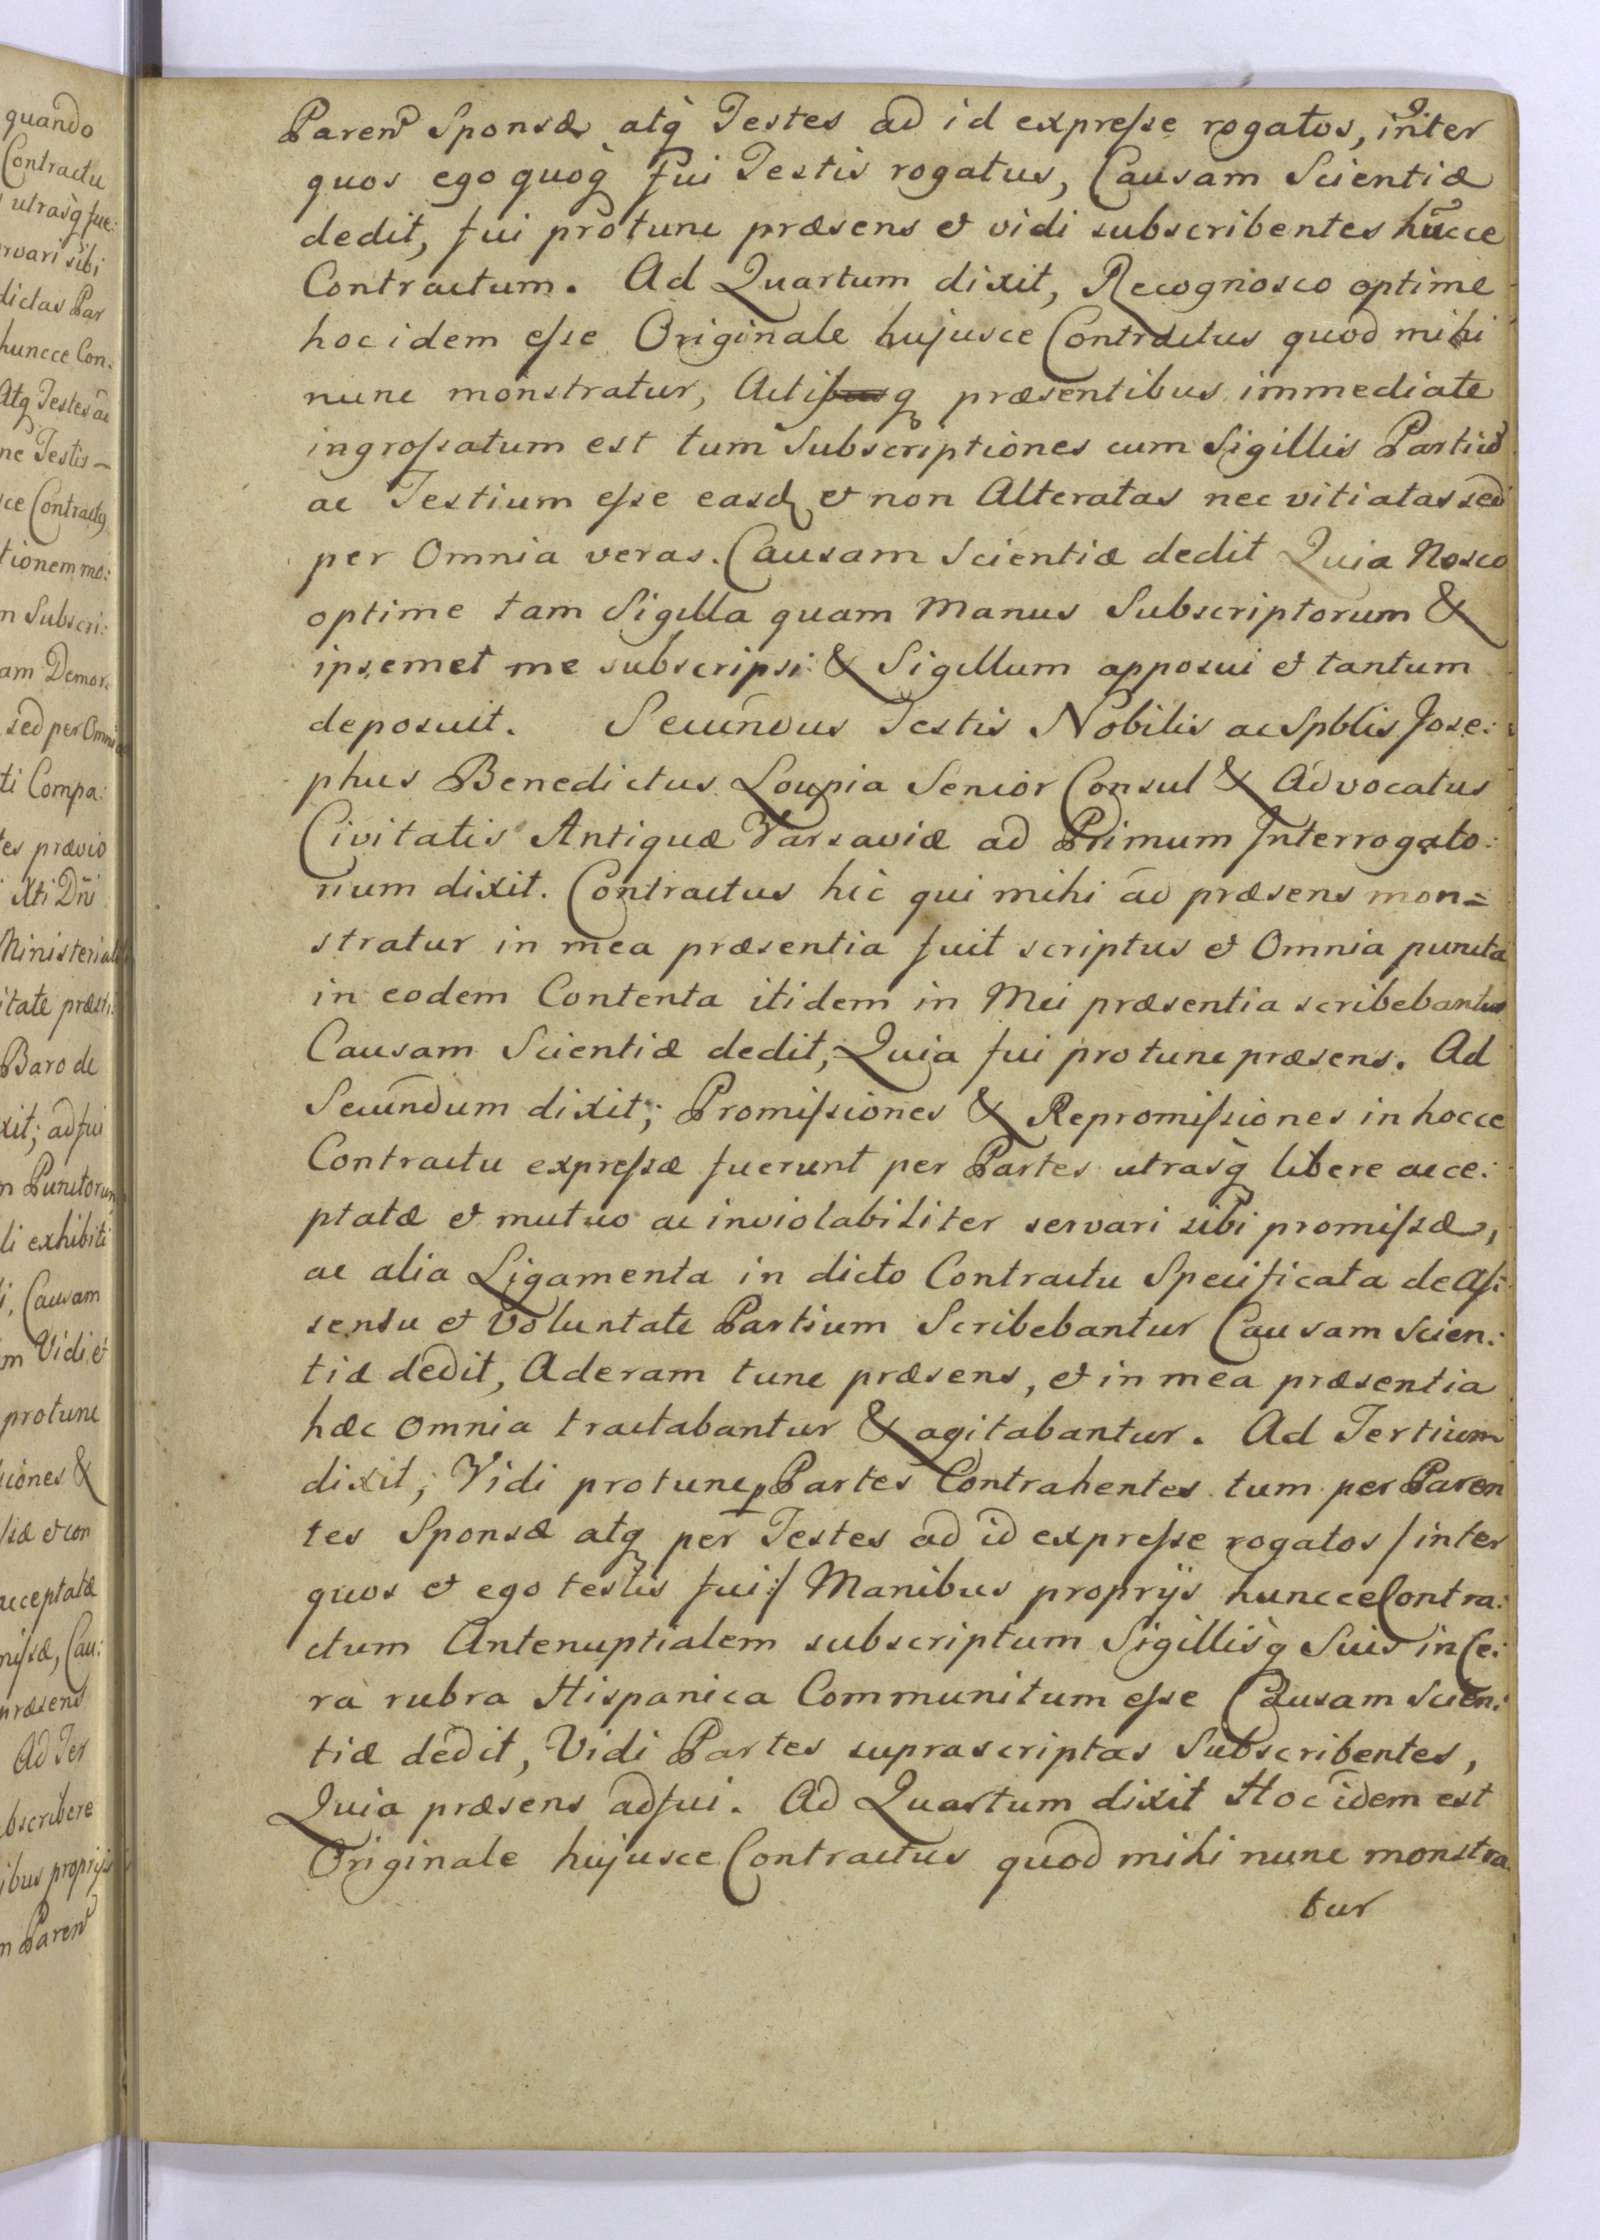 quando
Contractu
utrasq̀ fue:
rvari sibi
dictas Par
huncce Con:
Atq Testes ac
nc Testis –
ce Contractq
tionem mo:
m Subscri:
am Demon:
sed per Omnia
ti Compa:
tes prævio
Xti Dn̄i
Ministerial
itate præsti
Baro de
xit; adfui
m Punctorum
li exhibiti
i, Causam
m Vidi et
protunc
iones &
sæ et con
acceptatæ
missæ, Cau:
præsens
Ad Ter
bscribere
ibus proprijs
m Parent
Parent Sponsæ atq̀ Testes ad id expresse rogatos, inter
quos ego quoq̀ fui Testis rogatus, Causam Scientiæ
dedit, fui protunc præsens et vidi subscribentes hūcce
Contractum. Ad Quartum dixit, Recognosco optime
hoc idem esse Originale hujusce Contractus quod mihi
nunc monstratur, Actisq præsentibus immediate
ingrossatum est tum Subscriptiones cum Sigillis Partiū
ac Testium esse easd et non Alteratas nec vitiatas sed
per Omnia veras. Causam Scientiæ dedit Quia Nosco
optime tam Sigilla quam Manus Subscriptorum &
ipsemet me subscripsi & Sigillum apposui et tantum
deposuit. Secundus Testis Nobilis ac Spblis Jose:
phus Benedictus Loupia Senior Consul & Advocatus
Civitatis Antiquæ Varsaviæ ad Primum Interrogato:
rium dixit. Contractus hic qui mihi ad præsens mon=
stratur in mea præsentia fuit scriptus et Omnia puncta
in eodem Contenta itidem in Mei præsentia scribebantur
Causam Scientiæ dedit, Quia fui protunc præsens. Ad
Secundum dixit; Promissiones & Repromissiones in hocce
Contractu expressæ fuerunt per Partes utrasq̀ libere acce:
ptatæ et mutuo ac inviolabiliter servari sibi promissæ,
ac alia Ligamenta in dicto Contractu Specificata de As:
sensu et Voluntate Partium Scribebantur Causam Scien:
tiæ dedit, Aderam tunc præsens, et in mea præsentia
hæc Omnia tractabantur & agitabantur. Ad Tertium
dixit; Vidi protunc p Partes Contrahentes tum per Paren
tes Sponsæ atq per Testes ad id expresse rogatos /inter
quos et ego testis fui:/ Manibus proprijs huncce Contra:
ctum Antenuptialem subscriptum Sigillisq̀ Suis in Ce:
ra rubra Hispanica Communitum esse Causam Scien:
tiæ dedit, Vidi Partes suprascriptas Subscribentes,
Quia præsens adfui. Ad Quartum dixit Hoc idem est
Originale hujusce Contractus quod mihi nunc monstra
tur